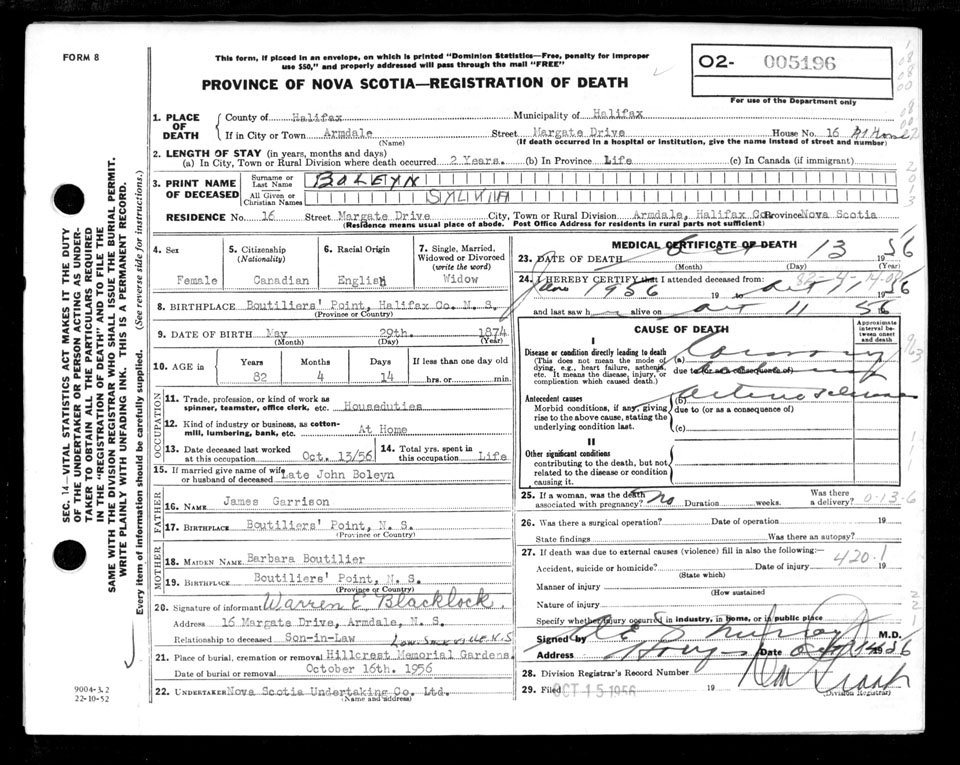 FORM 8
This form, if placed in an envelope, on which is printed "Dominion Statistics—Free, penalty for improper
use $50," and properly addressed will pass through the mail "FREE"
PROVINCE OF NOVA SCOTIA—REGISTRATION OF DEATH
O2- 005196
For use of the Department only
1. PLACE OF DEATH
County of Halifax Municipality of Halifax
If in City or Town Armdale Street Margate Drive House No. 16 At Home
(Name) (If death occurred in a hospital or institution, give the name instead of street and number)
2. LENGTH OF STAY (in years, months and days)
(a) In City, Town or Rural Division where death occurred 2 Years. (b) In Province Life (c) In Canada (if immigrant)
3. PRINT NAME OF DECEASED
Surname or Last Name BOLEYN
All Given or Christian Names SYLVIA
RESIDENCE No. 16 Street Margate Drive City, Town or Rural Division Armdale, Halifax Co. Province Nova Scotia
(Residence means usual place of abode. Post Office Address for residents in rural parts not sufficient)
4. Sex Female
5. Citizenship (Nationality) Canadian
6. Racial Origin English
7. Single, Married, Widowed or Divorced (write the word) Widow
8. BIRTHPLACE Boutiliers' Point, Halifax Co. N. S.
(Province or Country)
9. DATE OF BIRTH May 29th. 1874
(Month) (Day) (Year)
10. AGE in Years 82 Months 4 Days 14 If less than one day old hrs. or min.
OCCUPATION
11. Trade, profession, or kind of work as
spinner, teamster, office clerk, etc. Houseduties
12. Kind of industry or business, as cotton-
mill, lumbering, bank, etc. At Home
13. Date deceased last worked at this occupation Oct. 13/56
14. Total yrs. spent in this occupation Life
15. If married give name of wife
or husband of deceased Late John Boleyn
FATHER
16. NAME James Garrison
17. BIRTHPLACE Boutiliers' Point, N. S.
(Province or Country)
MOTHER
18. MAIDEN NAME Barbara Boutilier
19. BIRTHPLACE Boutiliers' Point, N. S.
(Province or Country)
20. Signature of informant Warren E. Blacklock.
Address 16 Margate Drive, Armdale, N. S.
Relationship to deceased Son-in-Law Low. Sackville N.S
21. Place of burial, cremation or removal Hillcrest Memorial Gardens.
Date of burial or removal October 16th. 1956
22. UNDERTAKER Nova Scotia Undertaking Co. Ltd.
(Name and address)
MEDICAL CERTIFICATE OF DEATH
23. DATE OF DEATH Oct 13 1956
(Month) (Day) (Year)
82-4-14
24. I HEREBY CERTIFY that I attended deceased from:
1956 19 to Oct 11 1956
and last saw h alive on Oct 11 56
CAUSE OF DEATH
Approximate interval between onset and death
I
Disease or condition directly leading to death
(This does not mean the mode of
dying, e.g., heart failure, asthenia,
etc. It means the disease, injury, or
complication which caused death.)
(a) Coronary
due to (or as a consequence of)
Antecedent causes
Morbid conditions, if any, giving
rise to the above cause, stating the
underlying condition last.
(b)
due to (or as a consequence of)
(c)
II
Other significant conditions
contributing to the death, but not
related to the disease or condition
causing it.
25. If a woman, was the death
associated with pregnancy? no Duration weeks. Was there a delivery? 0-13-6
26. Was there a surgical operation? Date of operation 19
State findings Was there an autopsy?
27. If death was due to external causes (violence) fill in also the following:—
420-1
Accident, suicide or homicide? Date of injury 19
(State which)
Manner of injury
(How sustained
Nature of injury
Specify whether injury occurred in industry, in home, or in public place
Signed by M.D.
Address Date 1956
28. Division Registrar's Record Number
29. Filed OCT 15 1956 19
(Division Registrar)
SEC. 14—VITAL STATISTICS ACT MAKES IT THE DUTY
OF THE UNDERTAKER OR PERSON ACTING AS UNDER-
TAKER TO OBTAIN ALL THE PARTICULARS REQUIRED
IN THE "REGISTRATION OF DEATH" AND TO FILE THE
SAME WITH THE DIVISION REGISTRAR WHO SHALL ISSUE THE BURIAL PERMIT.
WRITE PLAINLY WITH UNFADING INK. THIS IS A PERMANENT RECORD.
Every item of information should be carefully supplied. (See reverse side for instructions.)
9004-3.2
22-10-52